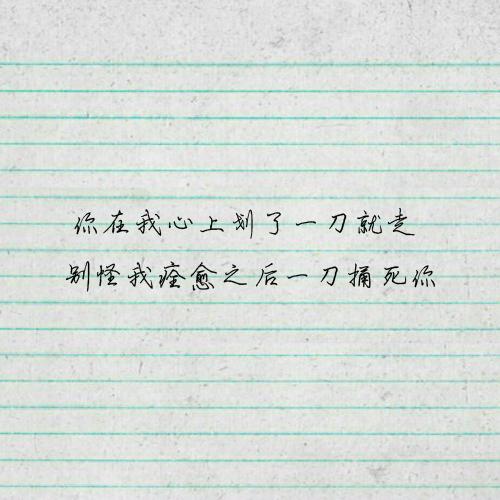 你在我心上划了一刀就走
别怪我痊愈之后一刀捅死你